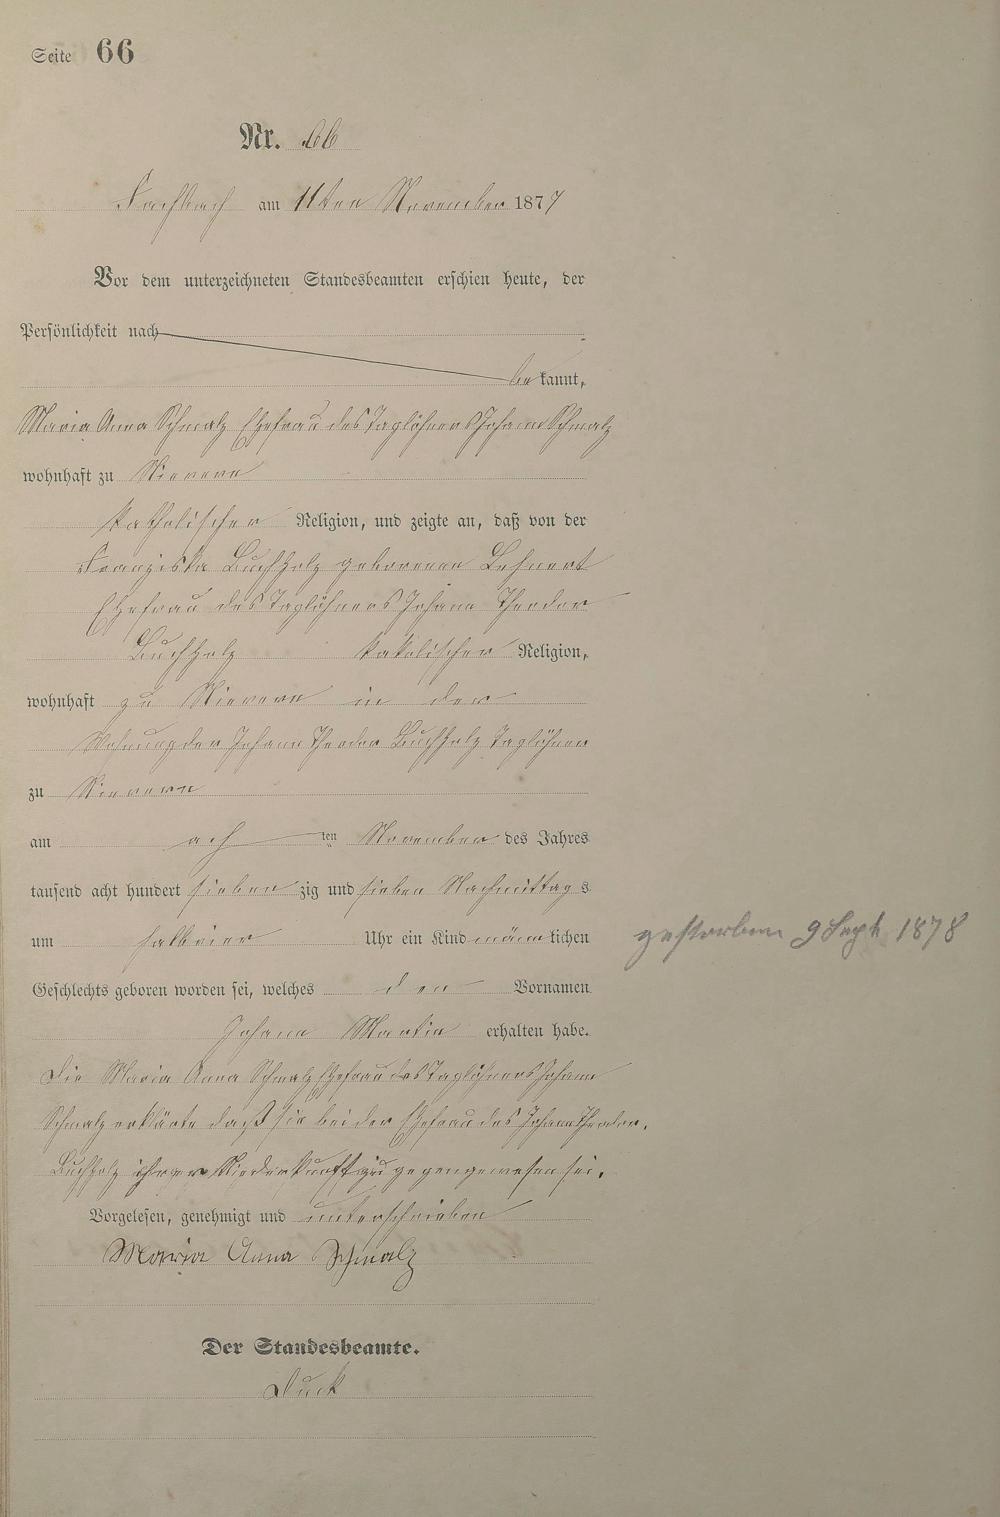 Seite 66
Nr. 66
Fachbach am 11ten November 1877
Vor dem unterzeichneten Standesbeamten erschien heute, der
Persönlichkeit nach
be kannt,
Maria Anna Schmalz Ehefrau des Taglöhners Johann Schmalz
wohnhaft zu Nievern
katholischer Religion, und zeigte an, daß von der
Franziska Buchholz geborenen Lehnert
Ehefrau des Taglöhners Johann Theodor
Buchholz katolischer Religion,
wohnhaft zu Nievern in der
Wohnung der Johann Theodor Buchholz Taglöhner
zu Nievern
am ach ten November des Jahres
tausend acht hundert sieben zig und sieben Nachmittag s
um halb vier Uhr ein Kind männ lichen
gestorben 9 Sept 1878
Geschlechts geboren worden sei, welches den Vornamen
Johann Martin erhalten habe.
Die Maria Anna Schmalz Ehefrau des Taglöhners Johann
Schmalz erklärte daß sie bei der Ehefrau des Johann Theodor.
Buchholz ihrer Niederkunft zu gegen gewesen sei.
Vorgelesen, genehmigt und unterschrieben
Maria Anna Schmalz
Der Standesbeamte.